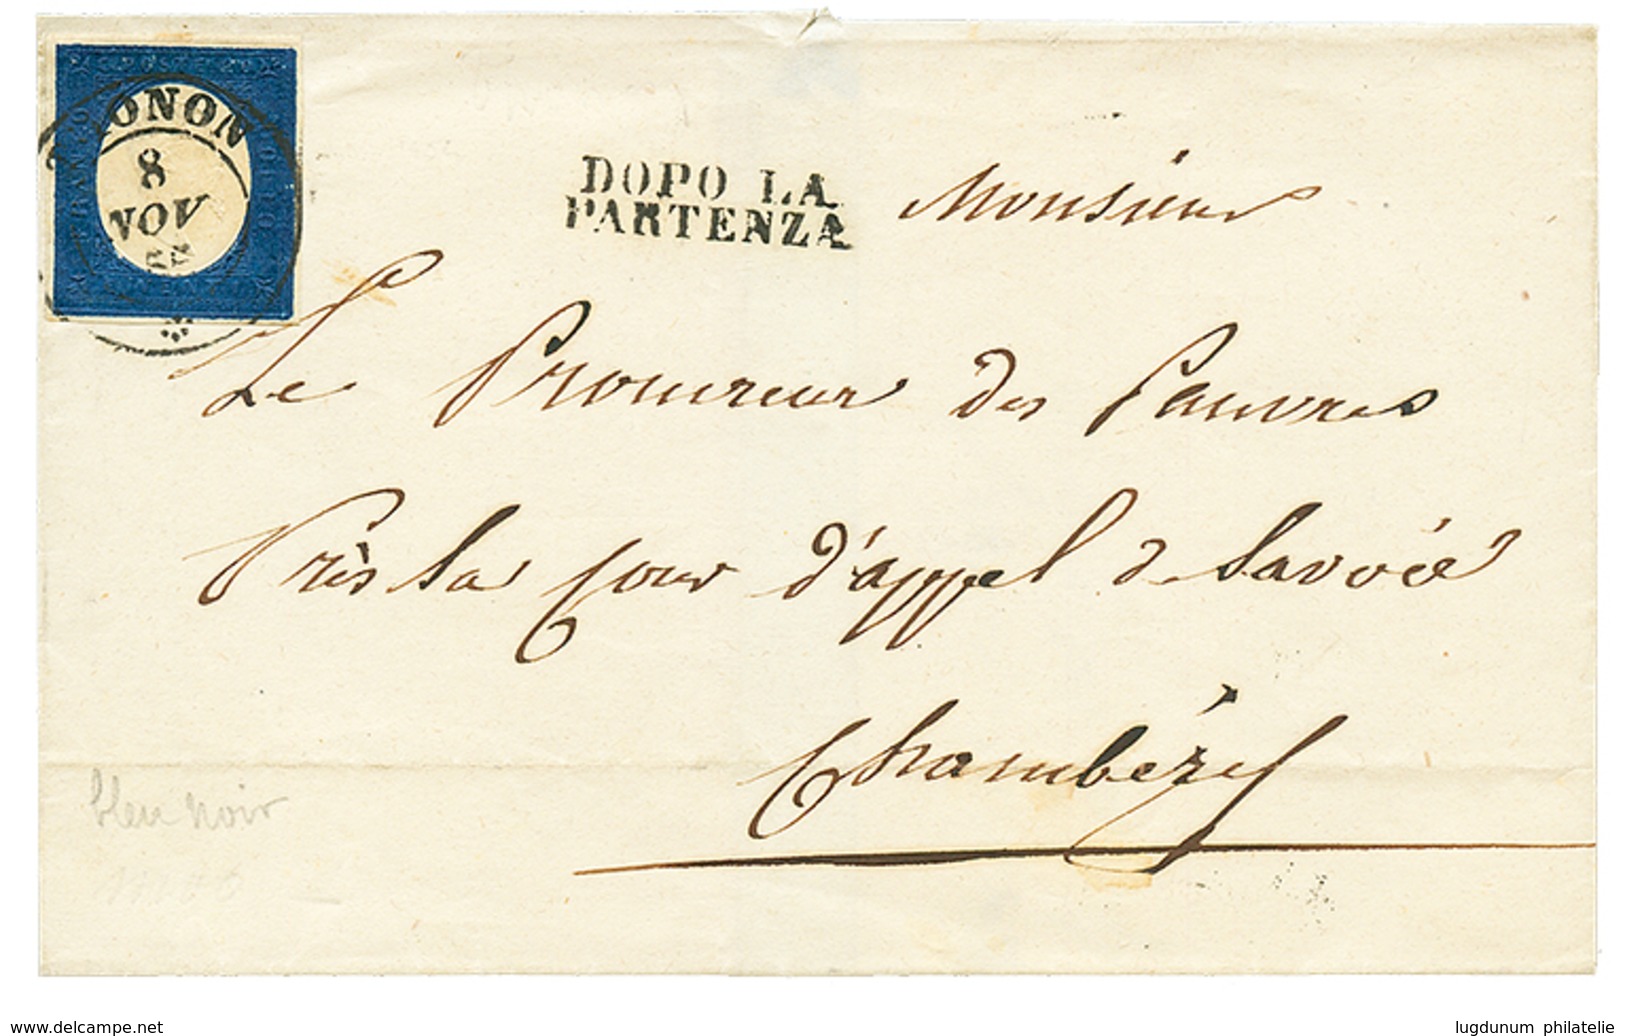 C. POSTE 20
FRANCO
THONON
8
NOV
55
DOPO LA
PARTENZA
Monsieur
Le Procureur des Pauvres
Près la Cour d'appel de Savoie
Chambéry
bleu noir
www.delcampe.net
lugdunum philatelie